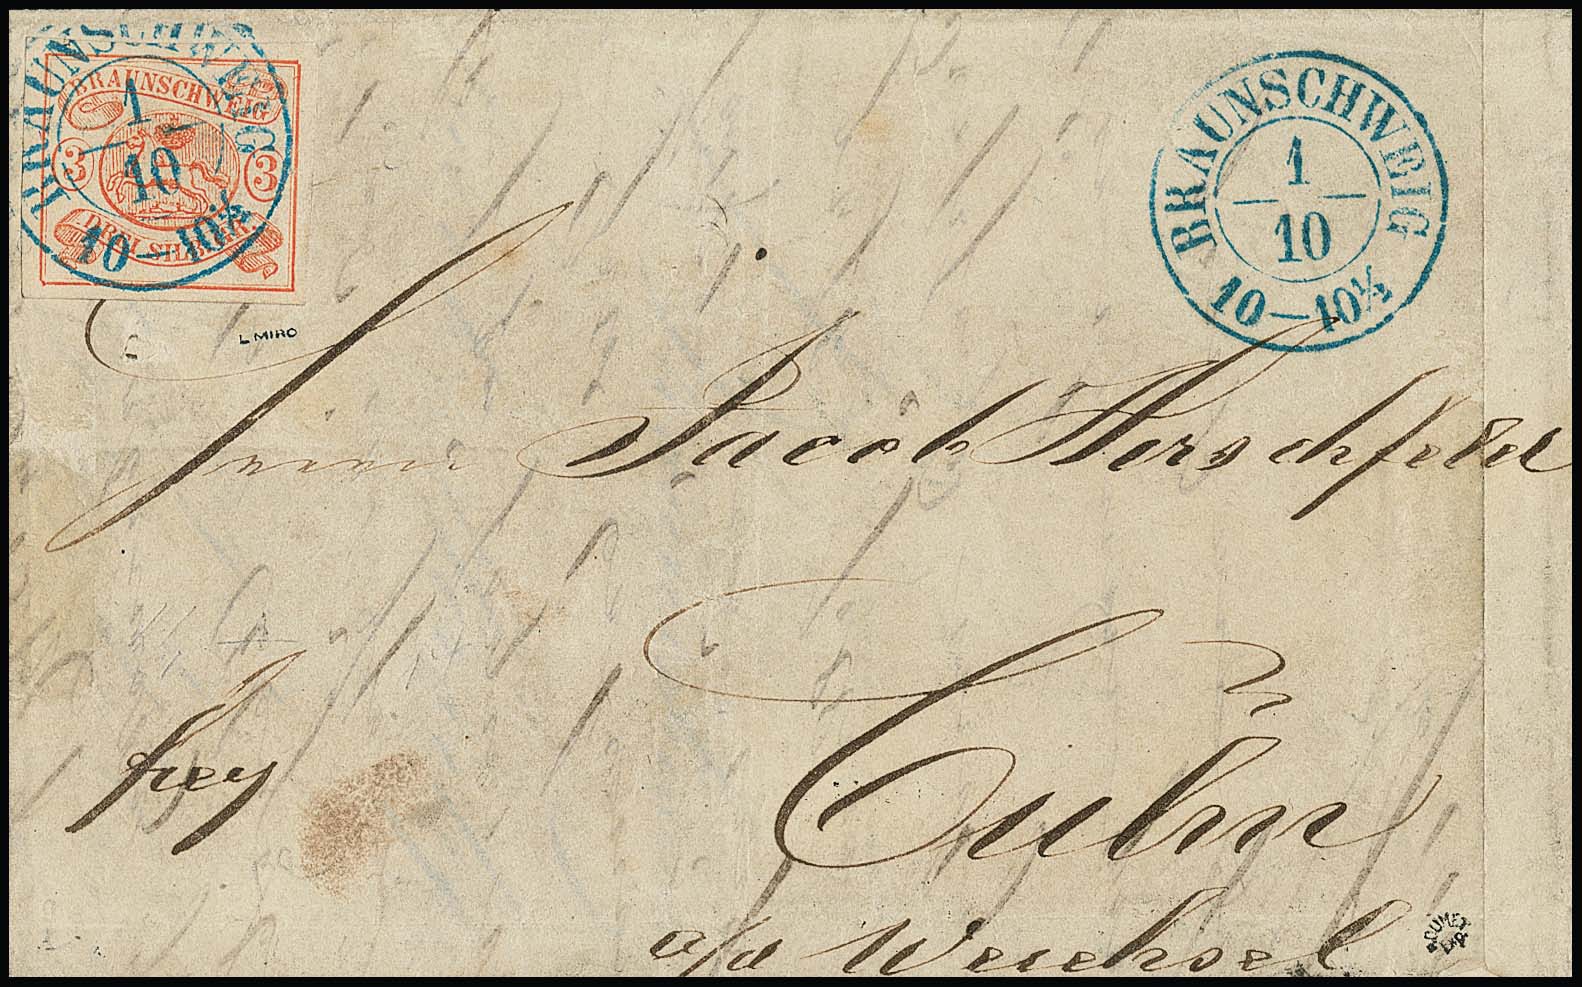 BRAUNSCHWEIG
1
10
10–10½
BRAUNSCHWEIG
3 3
DREI SILBERGR.
BRAUNSCHWEIG
1
10
10–10½
L MIRO
Herrn Jacob Herschfeld
Culm
frey
a/d Weichsel